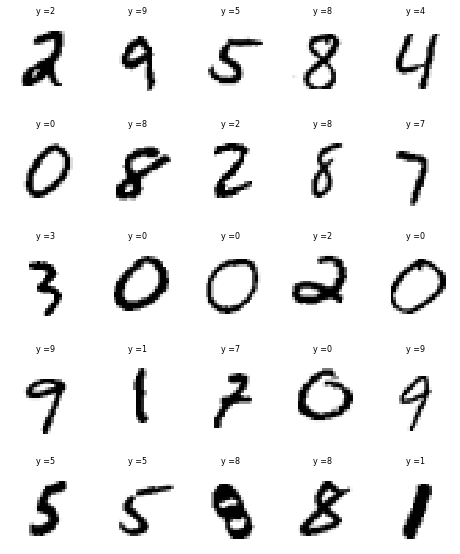 y =2 y =9 y =5 y =8 y =4
2 9 5 8 4
y =0 y =8 y =2 y =8 y =7
0 8 2 8 7
y =3 y =0 y =0 y =2 y =0
3 0 0 2 0
y =9 y =1 y =7 y =0 y =9
9 1 7 0 9
y =5 y =5 y =8 y =8 y =1
5 5 8 8 1